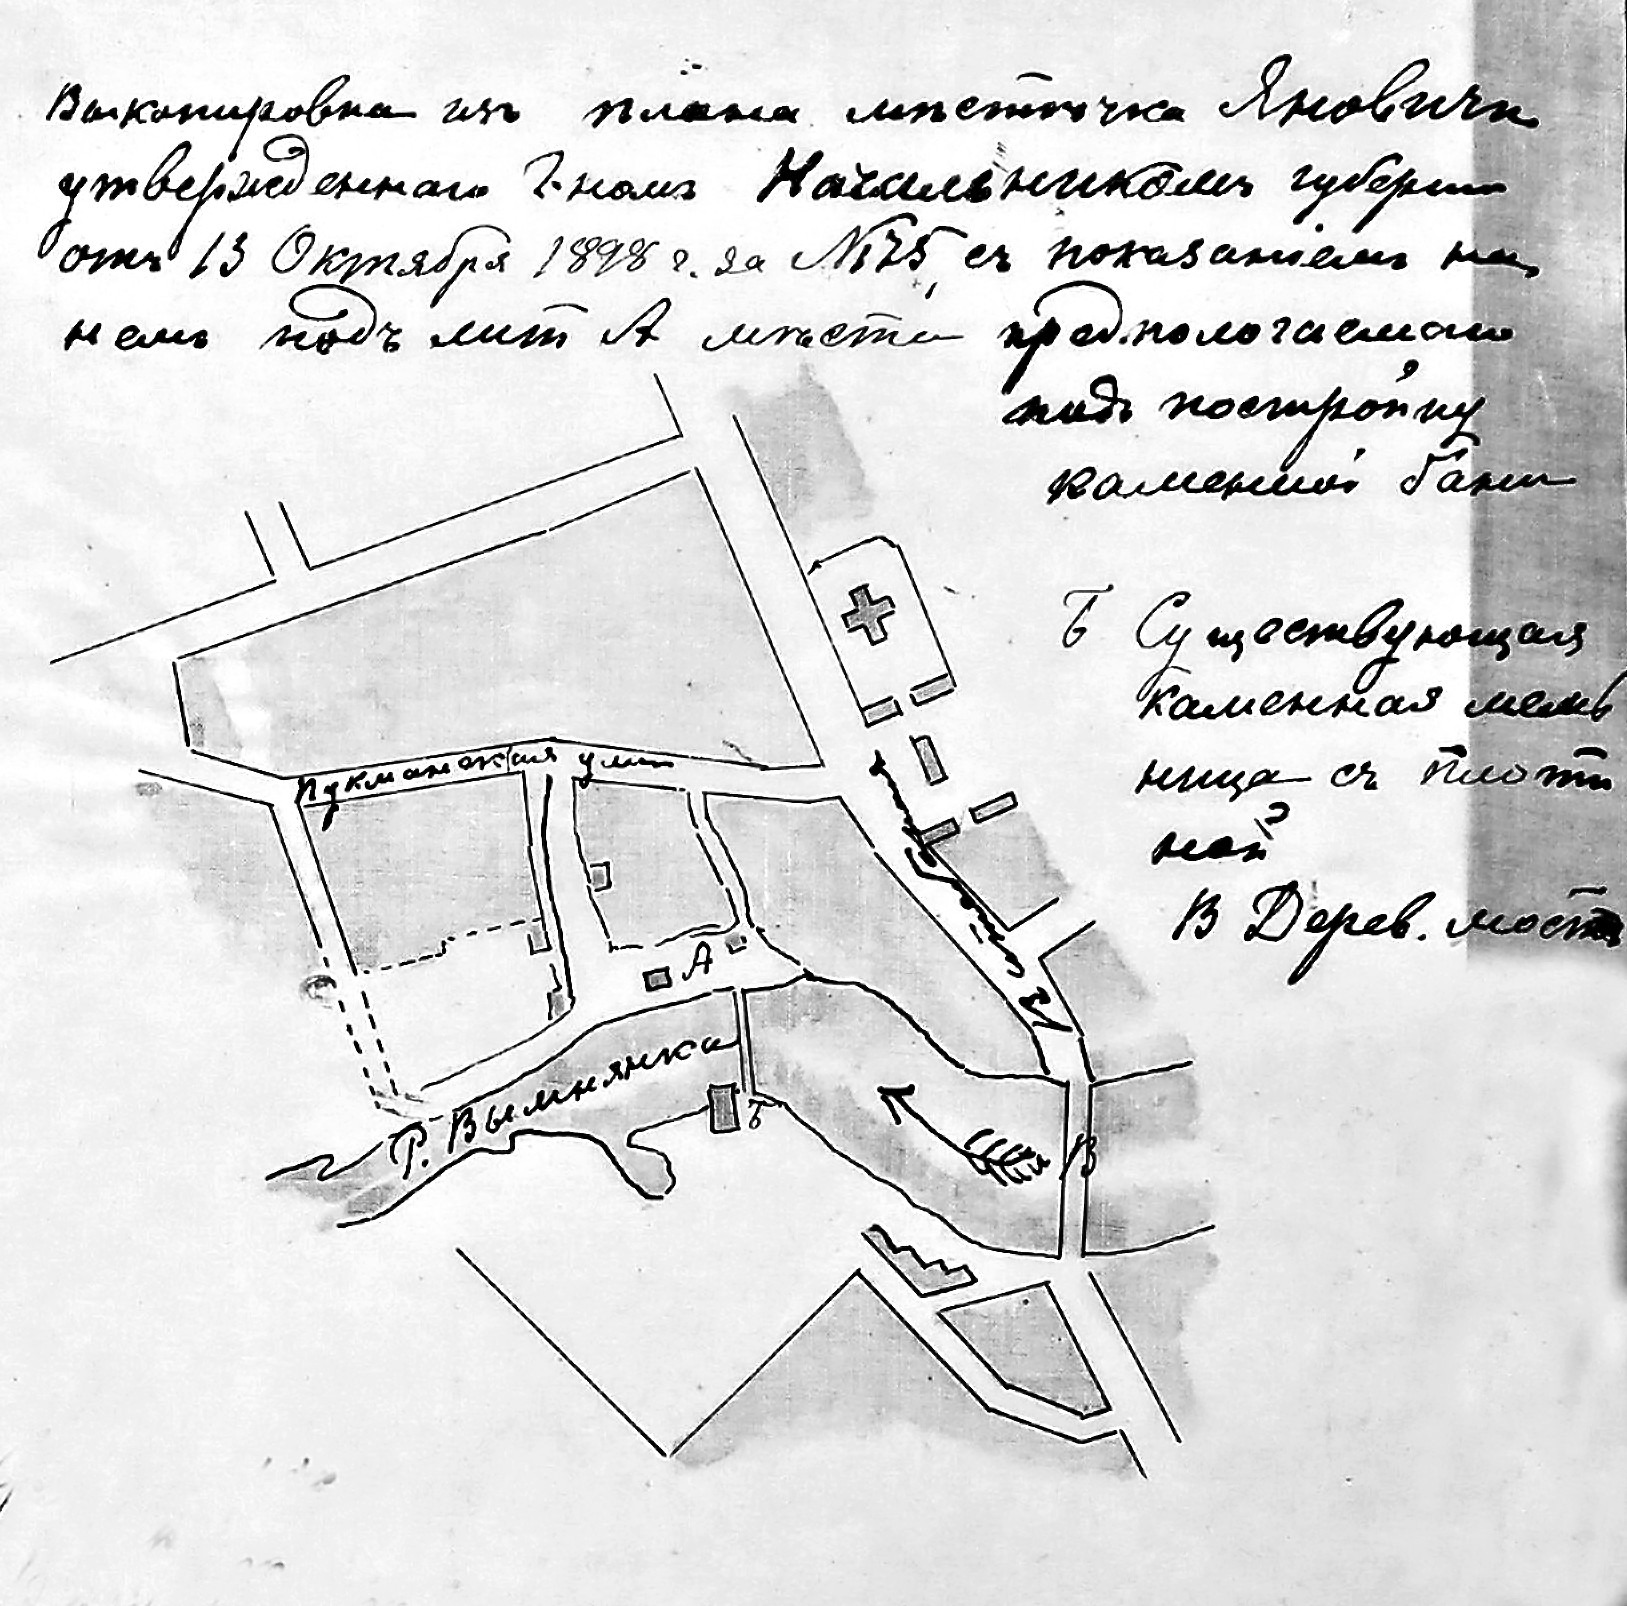 Выкопировка изъ плана мѣстечка Яновичи
утвержденнаго Г-номъ Начальникомъ губерніи
отъ 13 Октября 1898 г. за №75, съ показаніемъ на
немъ подъ лит А мѣста предпологаемаго
подъ постройку
каменной бани
Б Существующая
каменная мель
ница съ плоти
ной
В Дерев. мостъ
Пукманская ули
А
Р. Вымнянка
Б
В